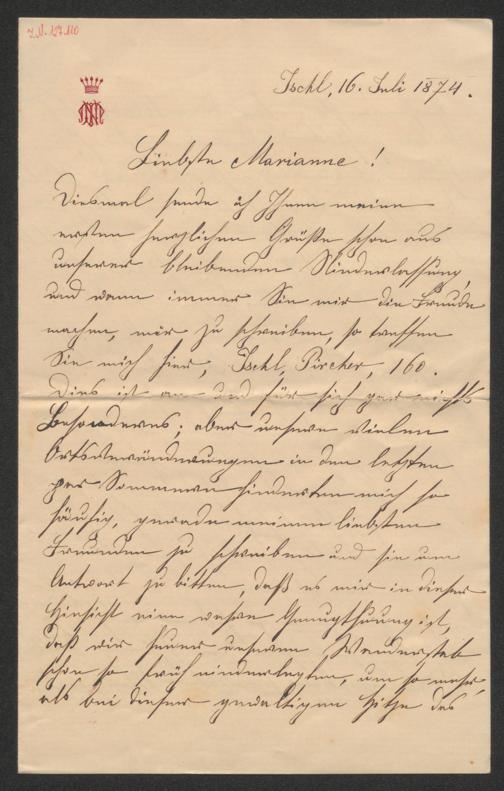 I.N. 127.110
Ischl, 16. Juli 1874.
Liebste Marianne!
Diesmal sende ich Ihnen meine
ersten herzlichen Grüße schon aus
unserer bleibenden Niederlassung,
und wann immer Sie mir die Freude
machen, mir zu schreiben, so treffen
Sie mich hier, Ischl, Pircher, 160.
Dies ist an und für sich gar nichts
Besonderes; aber unsere vielen
Ortsveränderungen in den letzten
paar Sommern hinderten mich so
häufig, gerade meinen liebsten
Freunden zu schreiben und sie um
Antwort zu bitten, daß es mir in dieser
Hinsicht eine wahre Genugthuung ist,
daß wir heuer unseren Wanderstab
schon so früh niederlegten, um so mehr,
als bei dieser gewaltigen Hitze das